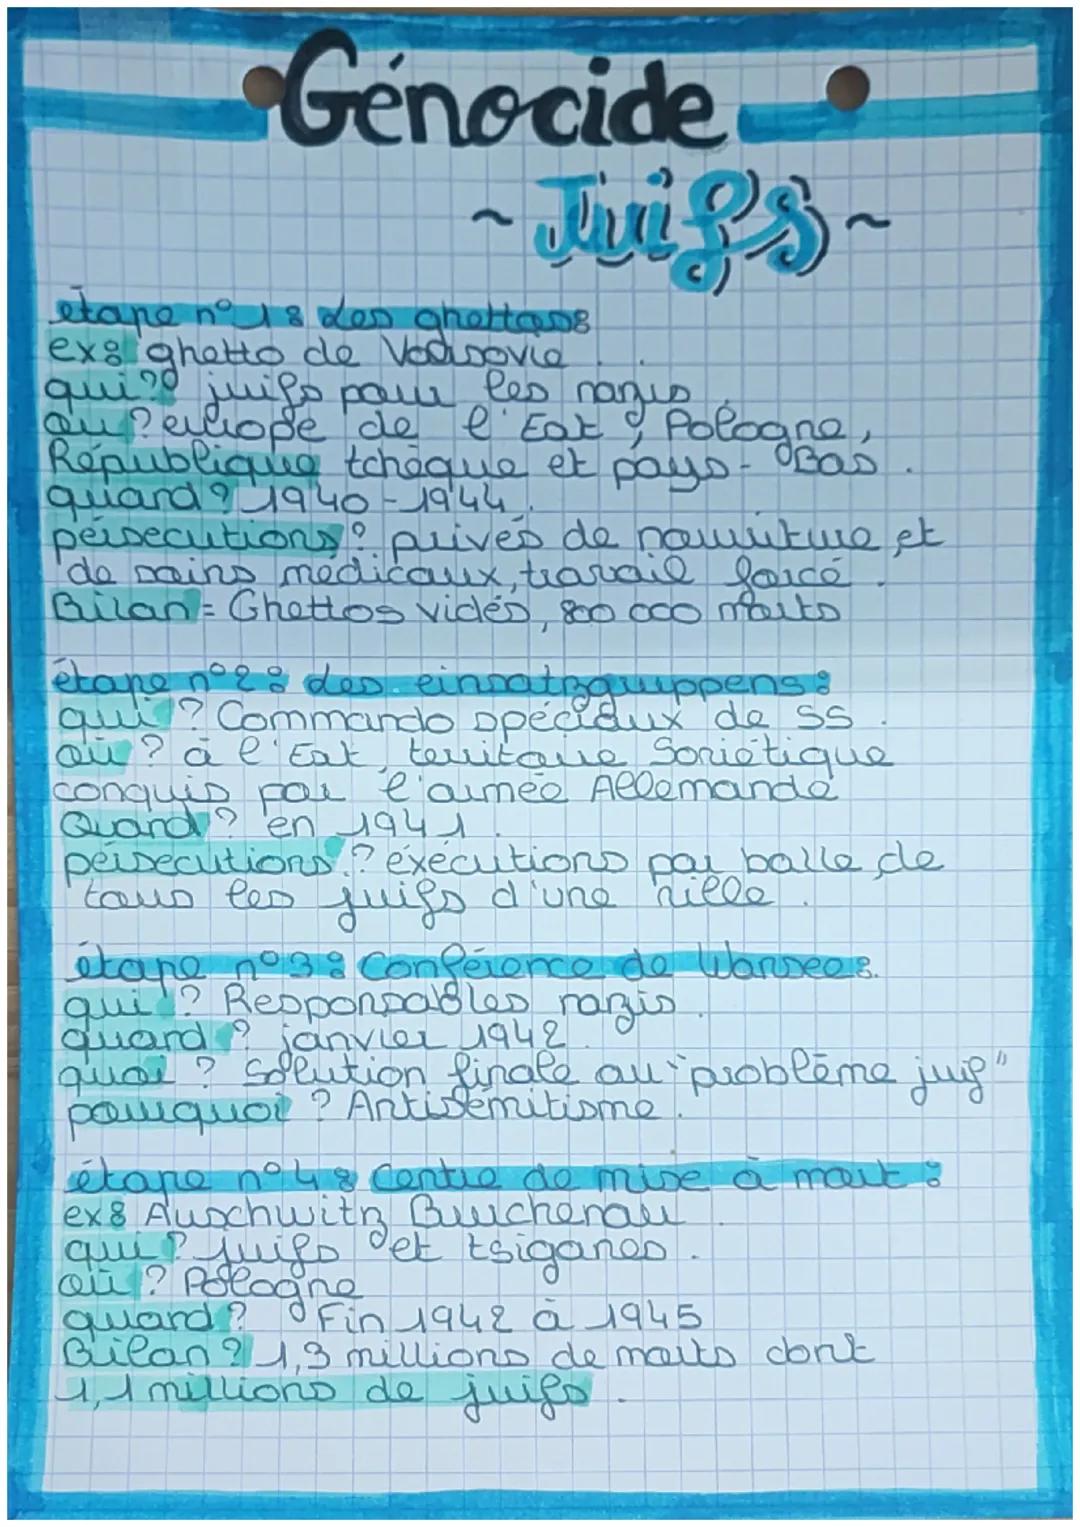 Génocide
~ Juifs ~
étape n°1 : des ghettos :
ex : ghetto de Varsovie .
qui ? juifs pour les nazis
où ? europe de l'Est , Pologne,
République tchèque et pays-Bas .
quand ? 1940-1944 .
pérsecutions ? privés de nourriture et
de soins médicaux, travail forcé .
Bilan = Ghettos vidés, 800 000 morts
étape n°2 : des einsatzgruppens :
qui ? Commando spéciaux de SS .
où ? à l'Est , territoire Soviétique
conquis par l'armée Allemande
Quand ? en 1941 .
pérsecutions ? éxécutions par balle de
tous les juifs d'une ville .
étape n°3 : Conférence de Wansee :
qui ? Responsables nazis .
quand ? janvier 1942 .
quoi ? Solution finale au "problème juif"
pourquoi ? Antisémitisme .
étape n°4 : Centre de mise à mort :
ex : Auschwitz
qui ? juifs et tsiganes .
où ? Pologne
quand ? Fin 1942 à 1945
Bilan ? 1,3 millions de morts dont
1,1 millions de juifs .